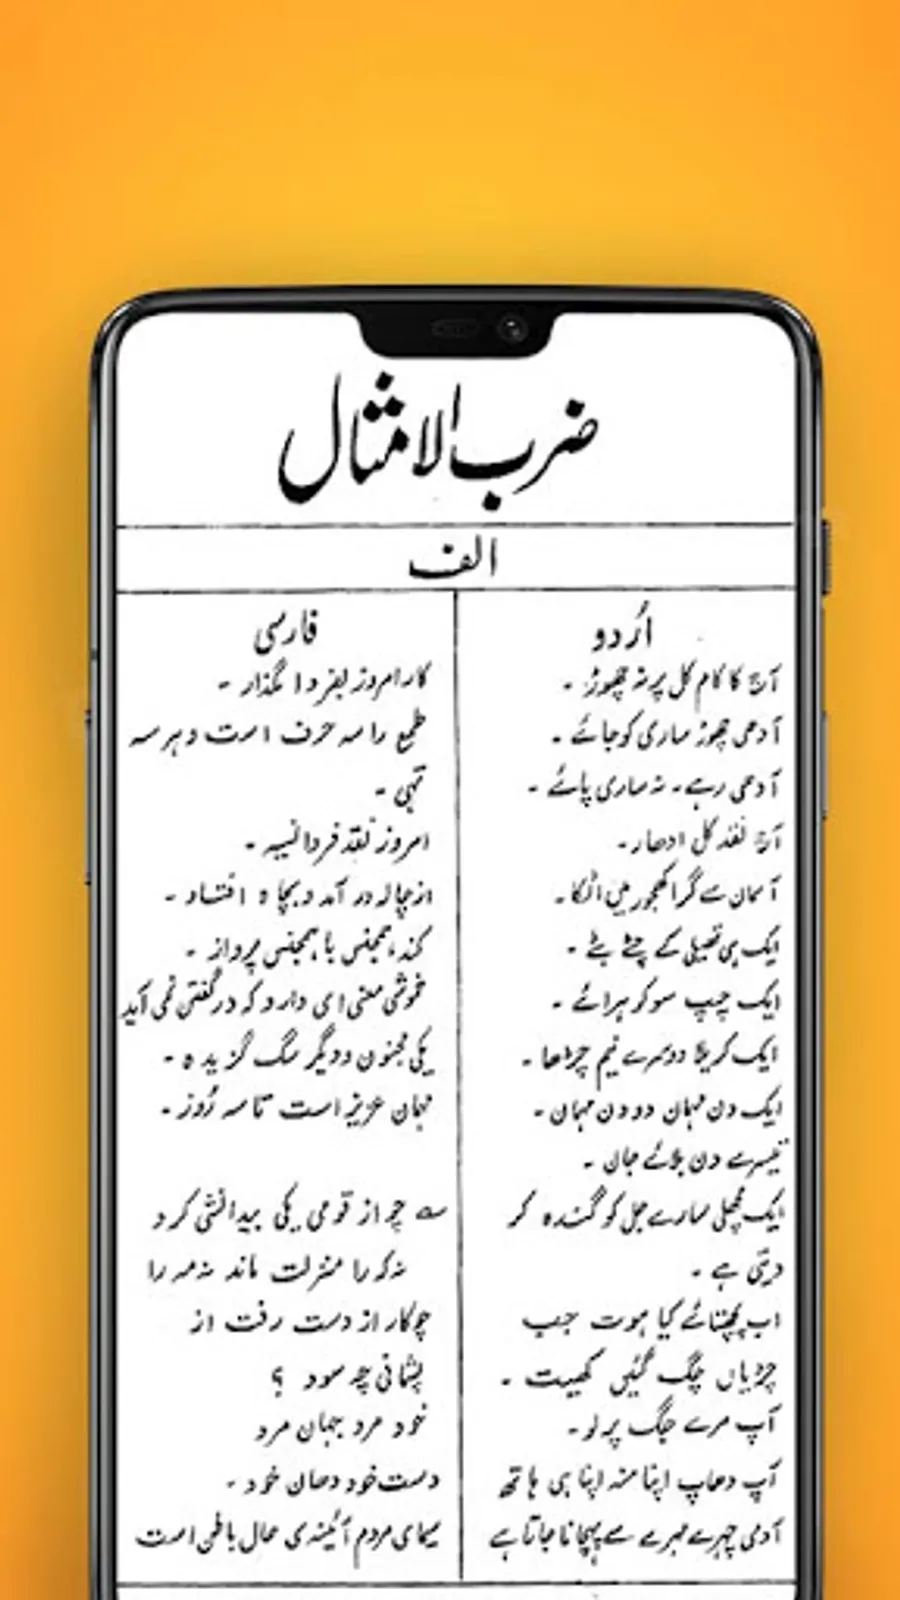 ضرب الامثال
الف
اُردو
آج کا کام کل پر نہ چھوڑ۔
آدھی چھوڑ ساری کو جائے۔
آدھی رہے۔ نہ ساری پائے۔
آج نقد کل ادھار۔
آسمان سے گرا کھجور میں اٹکا۔
ایک ہی تھیلی کے چٹے بٹے۔
ایک چپ سو کو ہرائے۔
ایک کریلا دوسرے نیم چڑھا۔
ایک دن مہمان دو دن مہمان۔
تیسرے دن بلائے جان۔
ایک مچھلی سارے جل کو گندہ کر
دیتی ہے۔
اب پچھتائے کیا ہوت جب
چڑیاں چگ گئیں کھیت۔
آپ مرے جگ پرلو۔
آپ دھاپ اپنا منہ اپنا ہی ہاتھ
آدمی چہرے مہرے سے پہچانا جاتا ہے
فارسی
کار امروز بفردا مگذار۔
طمع را سہ حرف است و ہر سہ
تہی۔
امروز نقد فردا نسیہ۔
از چالہ در آمد و بچاہ افتاد۔
کند ہمجنس با ہمجنس پرواز۔
خموشی معنی ای دارد کہ در گفتن نمی آید
یکی مجنون و دیگر سگ گزیدہ۔
مہمان عزیز است تا سہ رُوز۔
سے چو از قومی یکی بیدانشی کرد
نہ کہ را منزلت ماند نہ مہ را
چو کار از دست رفت از
پشیمانی چہ سود ؟
خود مرد جہان مرد
دست خود دھان خود۔
سیمای مردم آئینہ ی حال باطن است